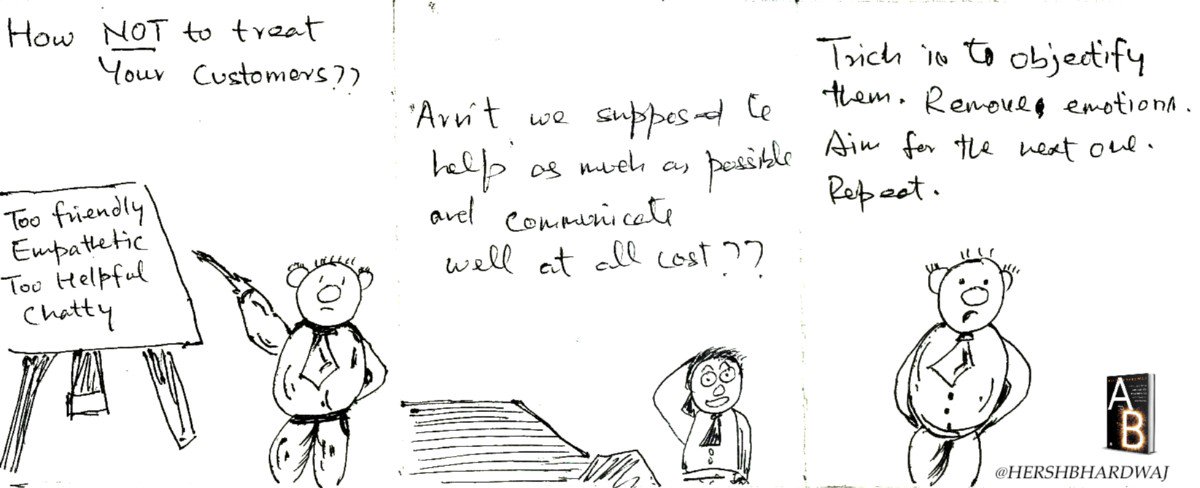 How NOT to treat
Your Customers??
Too friendly
Empathetic
Too Helpful
Chatty
"Arn't we supposed to
help as much as possible
and communicate
well at all cost??
Trick is to objectify
them. Remove emotions.
Aim for the next one.
Repeat.
A
B
@HERSHBHARDWAJ